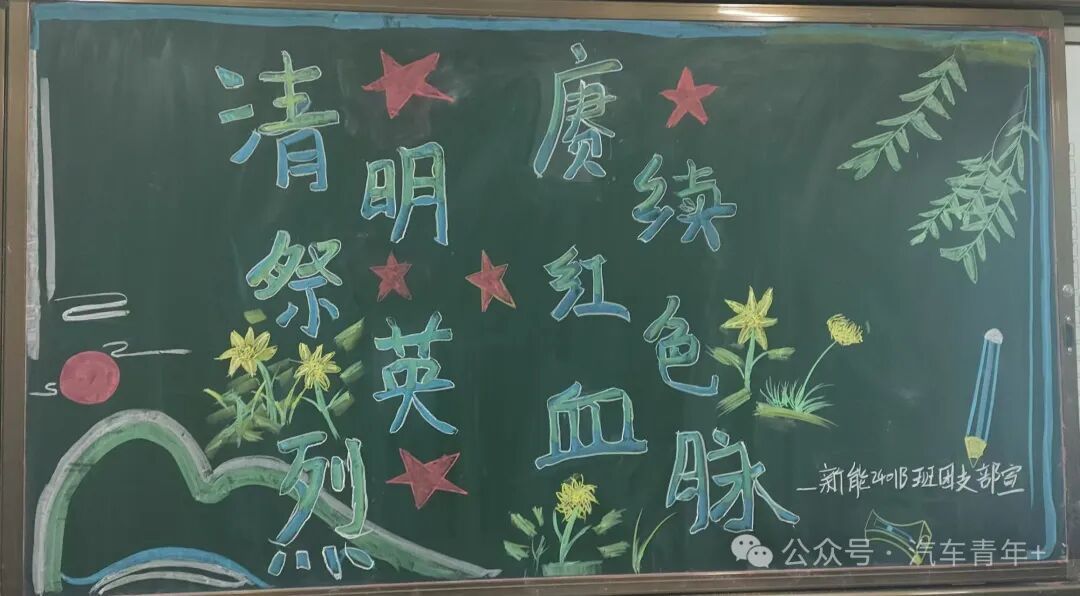 清明祭英烈
赓续红色血脉
新能2401B班团支部宣
公众号·汽车青年+